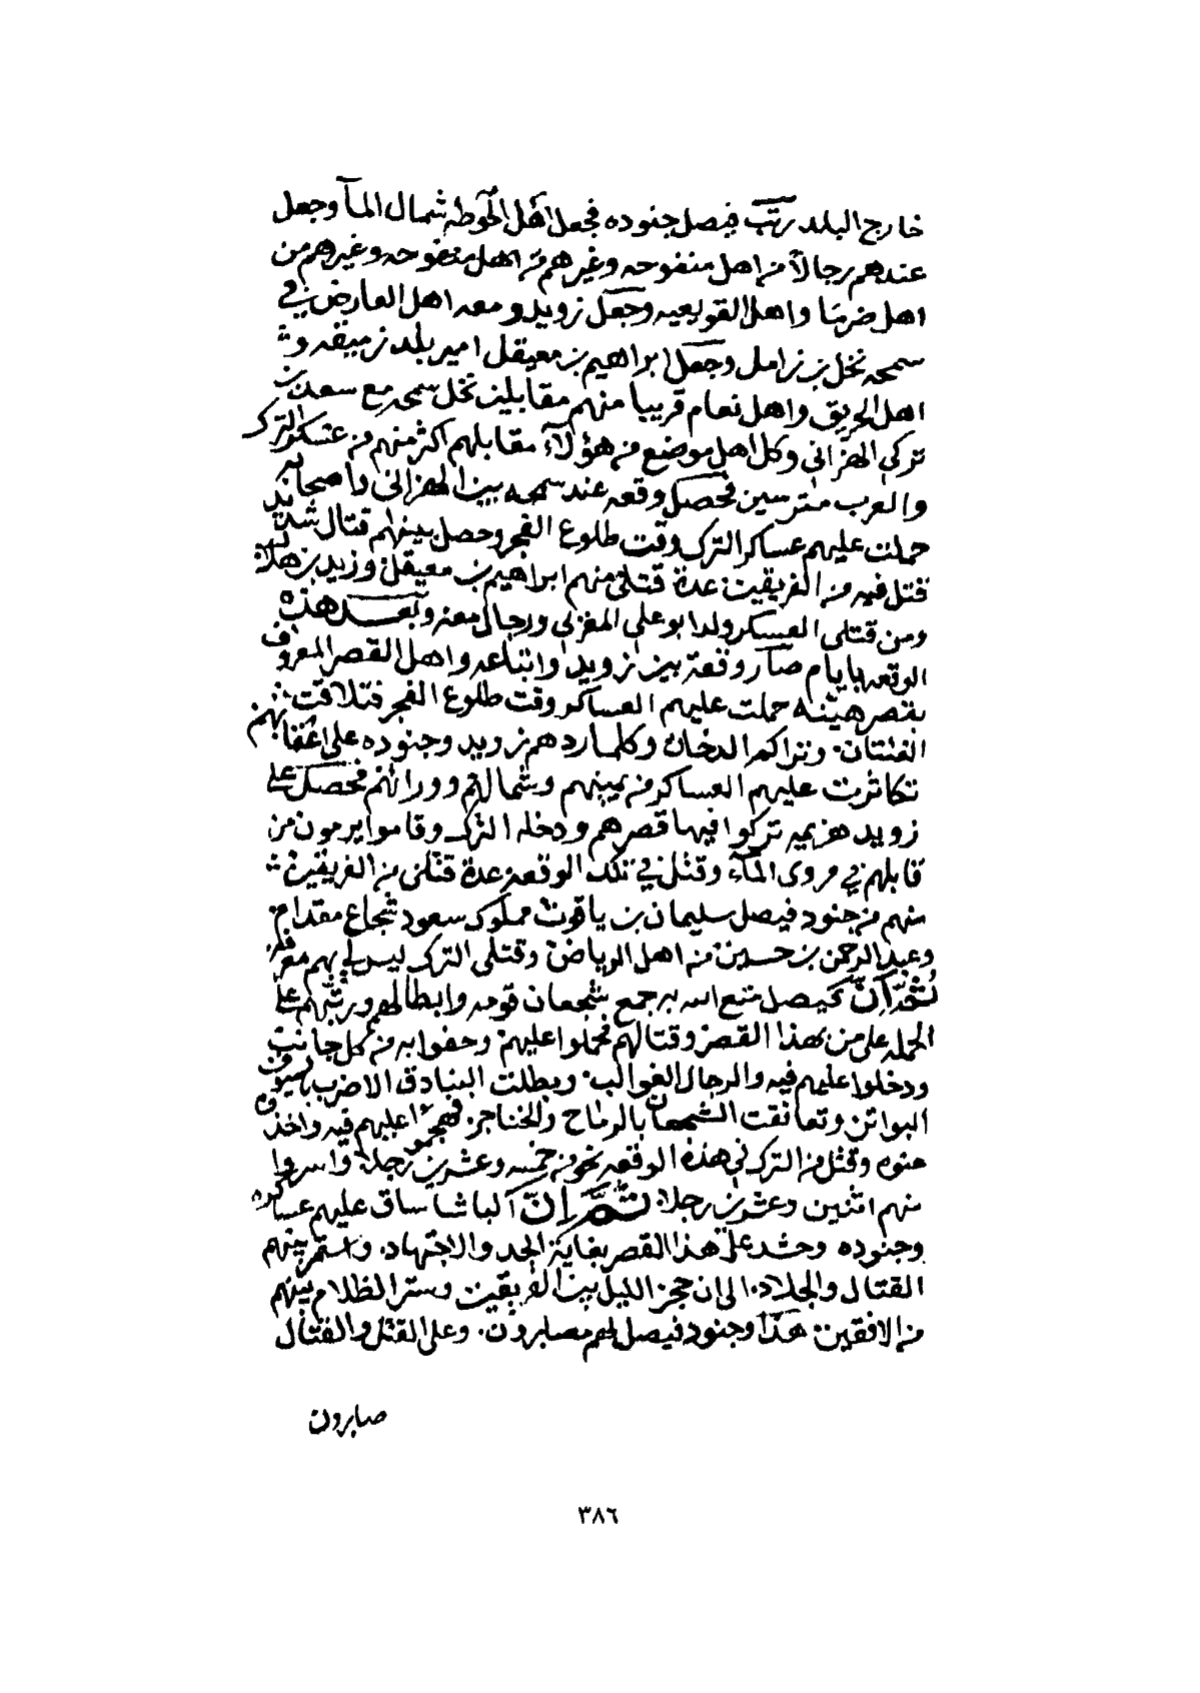 خارج البلد رتب فيصل جنوده فجعل اهل الحوطه شمال المآ وجعل
عندهم رجالاً من اهل منفوحه وغيرهم من اهل منفوحه وغيرهم من
اهل ضرما واهل القويعيه وجعل زويد ومعه اهل العارض في
سمحه نخل بن زامل وجعل ابراهيم بن معيقل امير بلد زميقه و
اهل الحريق واهل نعام قريبا منهم مقابلين نخل سمحه مع سعد بن
تركي الهزاني وكل اهل موضع من هؤلآء مقابلهم اكثر منهم من عسكر الترك
والعرب مترسين فحصل وقعه عند سمحه بين الهزاني واصحابه
حملت عليهم عساكر الترك وقت طلوع الفجر وحصل بينهم قتال شديد
قتل فيه من الفريقين عدة قتلى منهم ابراهيم بن معيقل وزيد بن هلال
ومن قتلى العسكر ولد ابو علي المغربي ورجال معه وبعد هذه
الوقعه بايام صار وقعة بين زويد واتباعه واهل القصر المعروف
بقصر هيثه حملت عليهم العساكر وقت طلوع الفجر فتلاقت
الفئتان وتراكم الدخان وكلما ردهم زويد وجنوده على اعقابهم
تكاثرت عليهم العساكر من يمينهم وشمالهم وورائهم فحصل على
زويد هزيمه تركوا فيها قصرهم ودخله الترك وقاموا يرمون من
قابلهم في مروى المآء وقتل في تلك الوقعة عدة قتلى من الفريقين
منهم من جنود فيصل سليمان بن ياقوت مملوك سعود شجاع مقدام
وعبد الرحمن بن حسين من اهل الرياض وقتلى الترك ليس لي بهم معرفه
ثم ان فيصل متع الله به جمع شجعان قومه وابطالهم ورتبهم على
الحمله على من بهذا القصر وقتالهم فحملوا عليهم وحفوا به من كل جانب
ودخلوا عليهم فيه والرجال الغوالب وبطلت البنادق الا ضرب بالسيوف
البواتر وتعانقت الشجعان بالرماح والخناجر فهجموا عليهم فيه واخذ
عنوه وقتل من الترك في هذه الوقعه نحو من خمسه وعشرين رجلا واسروا
منهم اثنين وعشرين رجلا ثم ان الباشا ساق عليهم عساكره
وجنوده وحشد على هذا القصر بغاية الجد والاجتهاد واستمر بينهم
القتال والجلاد الى ان حجز الليل بين الفريقين وستر الظلام بينهم
من الافقين هذا وجنود فيصل لهم مصابرون وعلى القتل والقتال
صابرون
٣٨٦